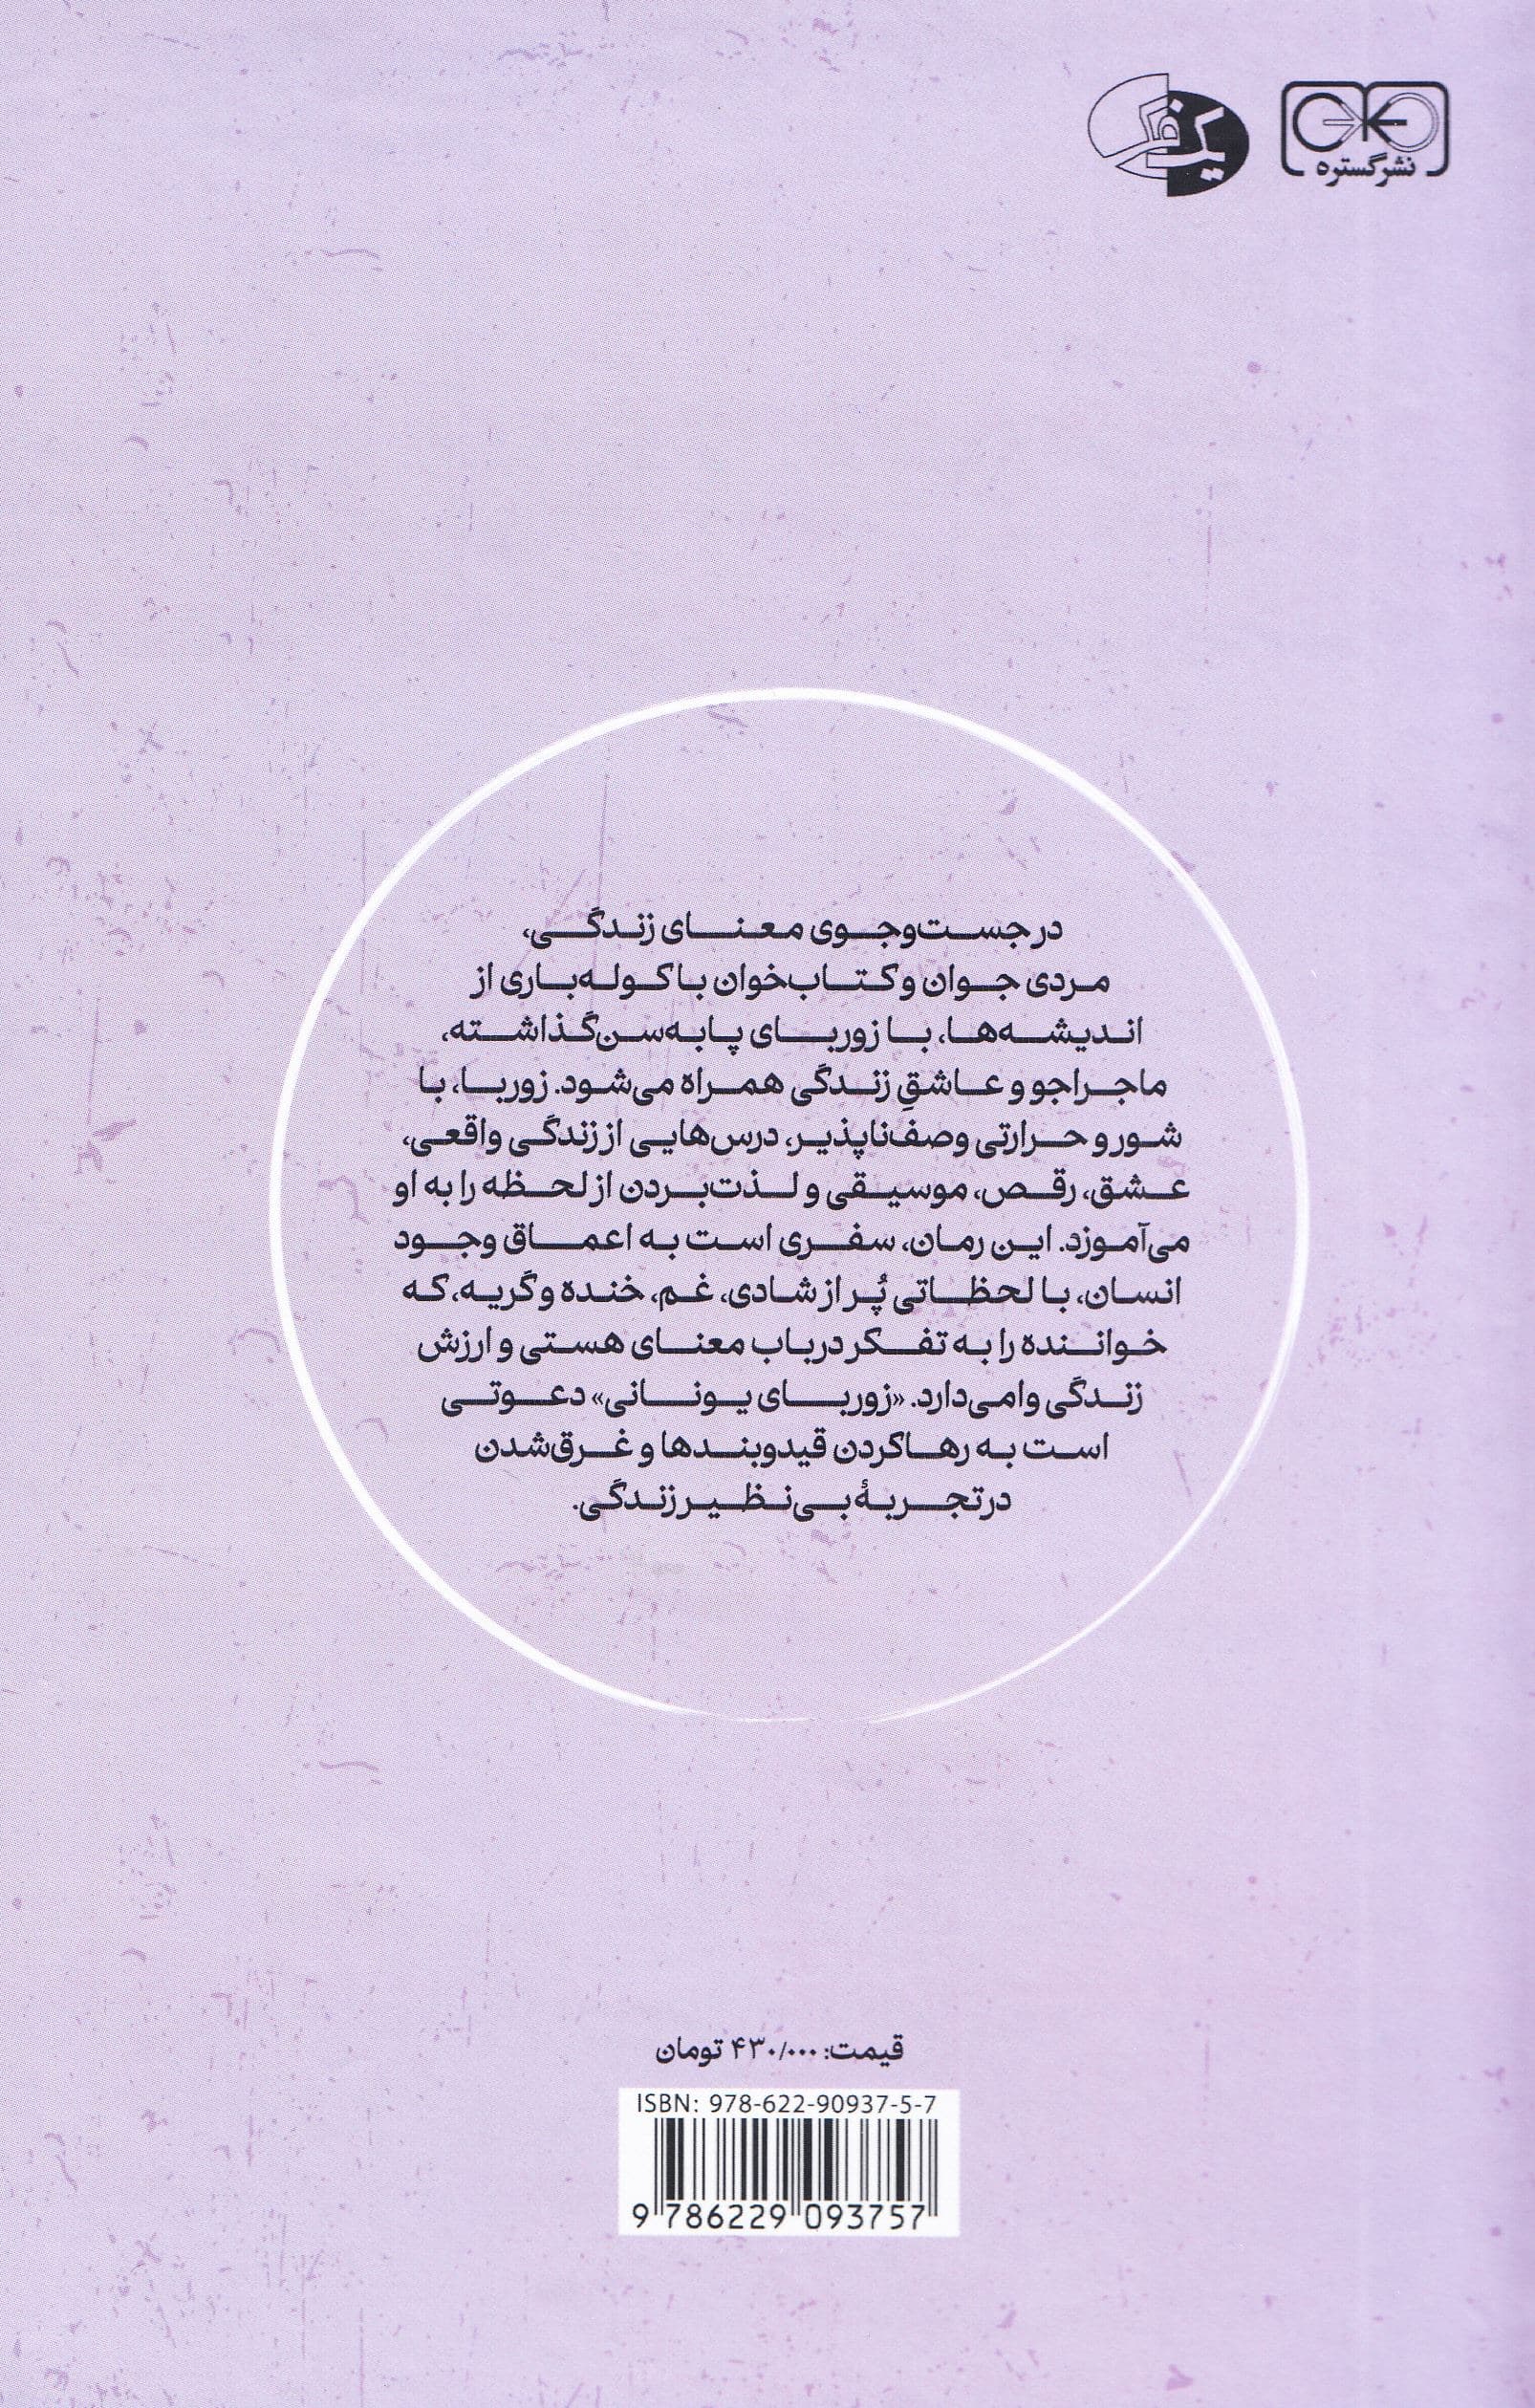 نشر گستره
در جست‌وجوی معنای زندگی،
مردی جوان و کتاب‌خوان با کوله‌باری از
اندیشه‌ها، با زوربای پا‌به‌سن‌گذاشته،
ماجراجو و عاشقِ زندگی همراه می‌شود. زوربا، با
شور و حرارتی وصف‌ناپذیر، درس‌هایی از زندگی واقعی،
عشق، رقص، موسیقی و لذت‌بردن از لحظه را به او
می‌آموزد. این رمان، سفری است به اعماق وجود
انسان، با لحظاتی پُر از شادی، غم، خنده و گریه، که
خواننده را به تفکر درباب معنای هستی و ارزش
زندگی وامی‌دارد. «زوربای یونانی» دعوتی
است به رهاکردن قیدوبندها و غرق‌شدن
در تجربهٔ بی‌نظیر زندگی.
قیمت: ۴۳۰/۰۰۰ تومان
ISBN: 978-622-90937-5-7
9 786229 093757